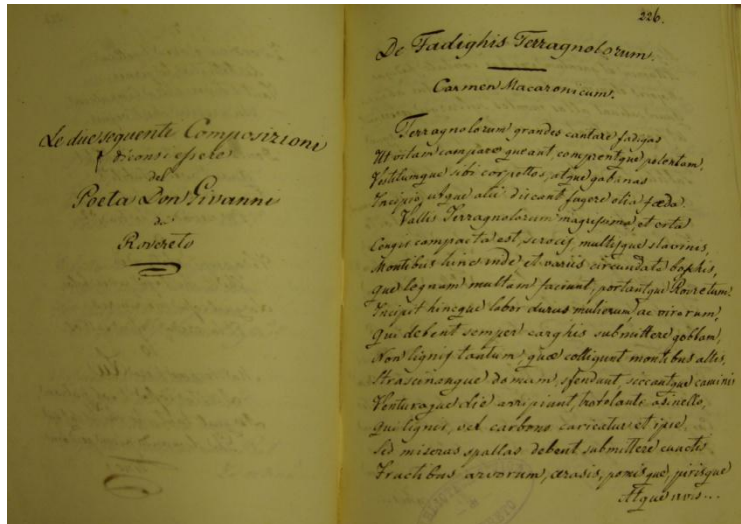 Le due seguenti Composizioni
diconsi essere
del
Poeta Don Givanni
di
Rovereto
226.
De Fadighis Terragnolorum.
Carmen Macaronicum.
Terragnolorum grandes cantare fadigas
Ut vitam campare queant, comprentque polentam,
Vestitumque sibi corpettos, atque gabanas
Incipio, utque alii discant fugere otia fæda.
Vallis Terragnolorum magrissima, et erta
Congis compacta est, scrocis, multisque slavinis,
Montibus hinc inde et variis circundata boschis,
Que legnam multam faciunt, portantque Rovretum.
Incipit hincque labor durus mulierum, ac virorum,
Qui debent semper carghis submittere gobbam,
Non lignis tantum, quæ colligunt montibus altis,
Strascinanque domum, sfendunt, seccantque camini
Venturaque die arripiunt, trotolante asinello,
Qui lignis, vel carbone caricatur et ipse,
Sed miseras spallas debent submittere cuncti
Fructibus arborum, cerasis, pomisque, pirisque
Atque